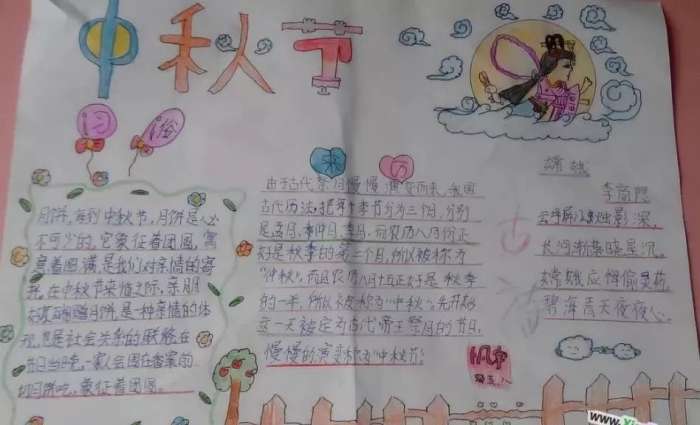 中秋节
习俗
月饼,每到中秋节,月饼是必
不可少的,它象征着团圆,寓
意着圆满,是我们对亲情的寄
托,在中秋节来临之际,亲朋
好友的赠月饼,是一种亲情的体
现,也是社会关系的联络,在
节日当晚,一家人会围在香案前
切月饼吃,象征着团圆。
来历
由于古代祭月慢慢演变而来,我国
古代历法,把每个季节分为三个月,分别
是孟月,仲月,季月,而农历八月份正
好是秋季的第二个月,所以被称为
"仲秋",而且农历八月十五正好是秋季
的一半,所以又被称为"中秋"。先开始
这一天被定为古代帝王祭月的节日,
慢慢的演变成为"中秋节"。
嫦娥
李商隐
云母屏风烛影深,
长河渐落晓星沉。
嫦娥应悔偷灵药,
碧海青天夜夜心。
古
诗
www.Xi